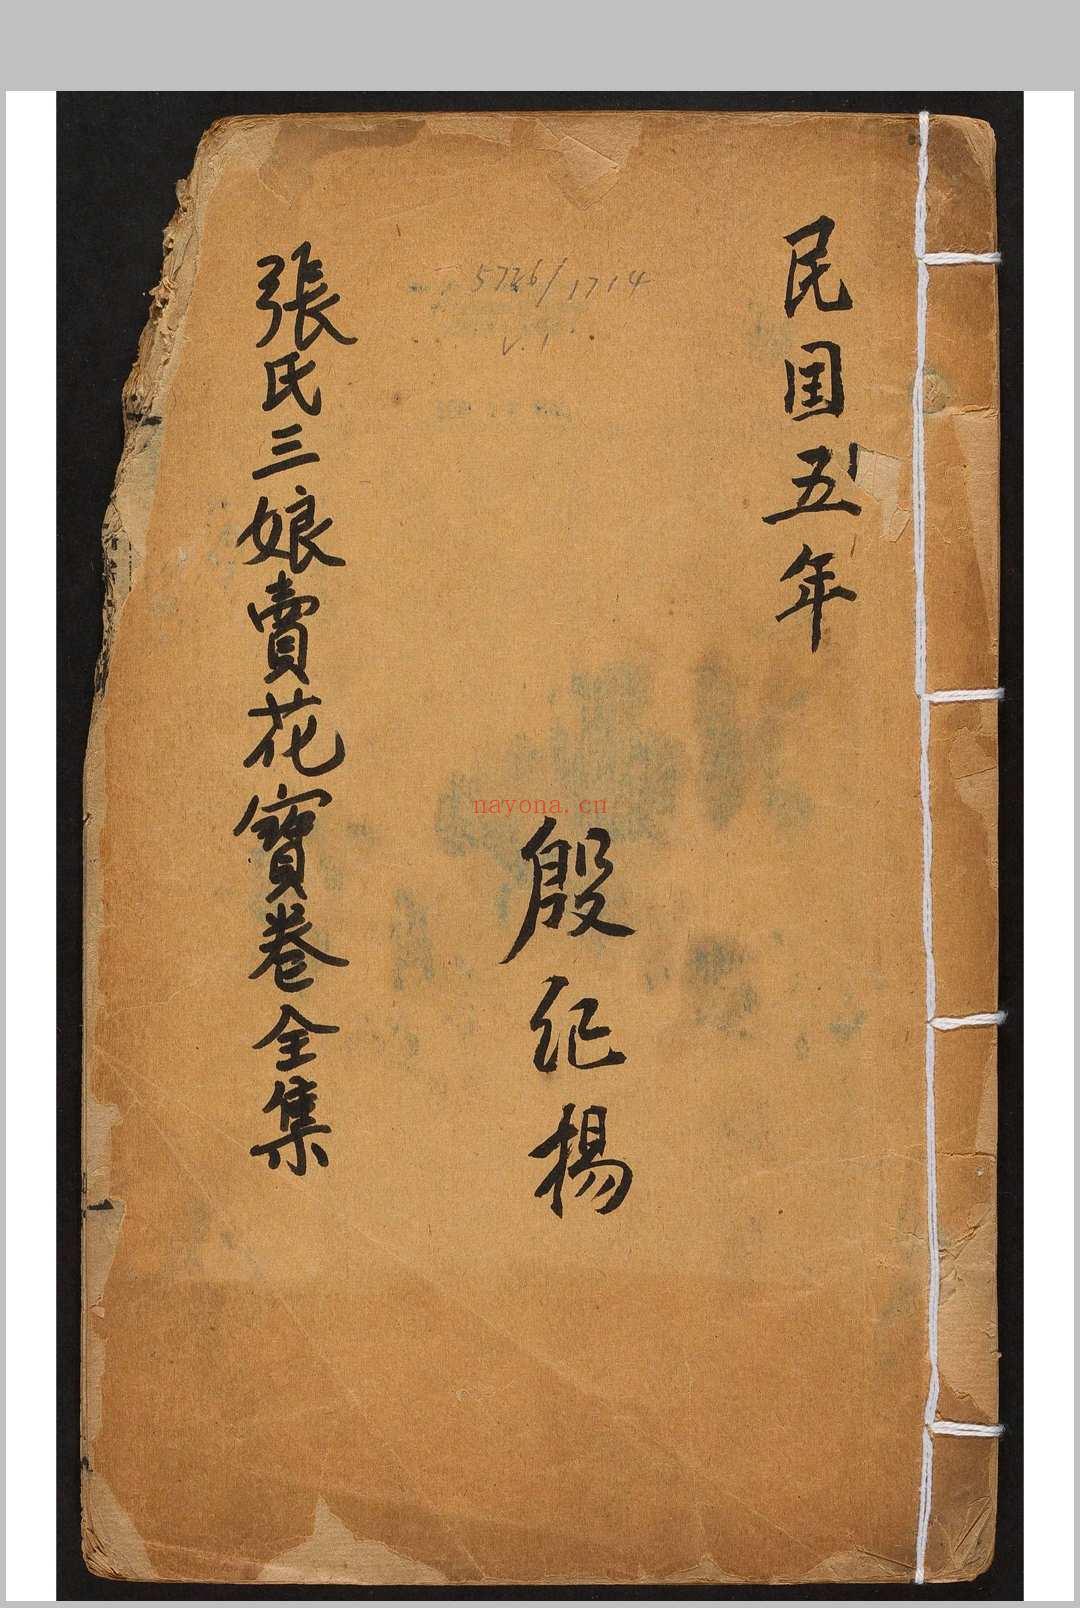 民国五年
殷纪揚
張氏三娘賣花寶卷全集
5726/1714
v.1
nayona.cn